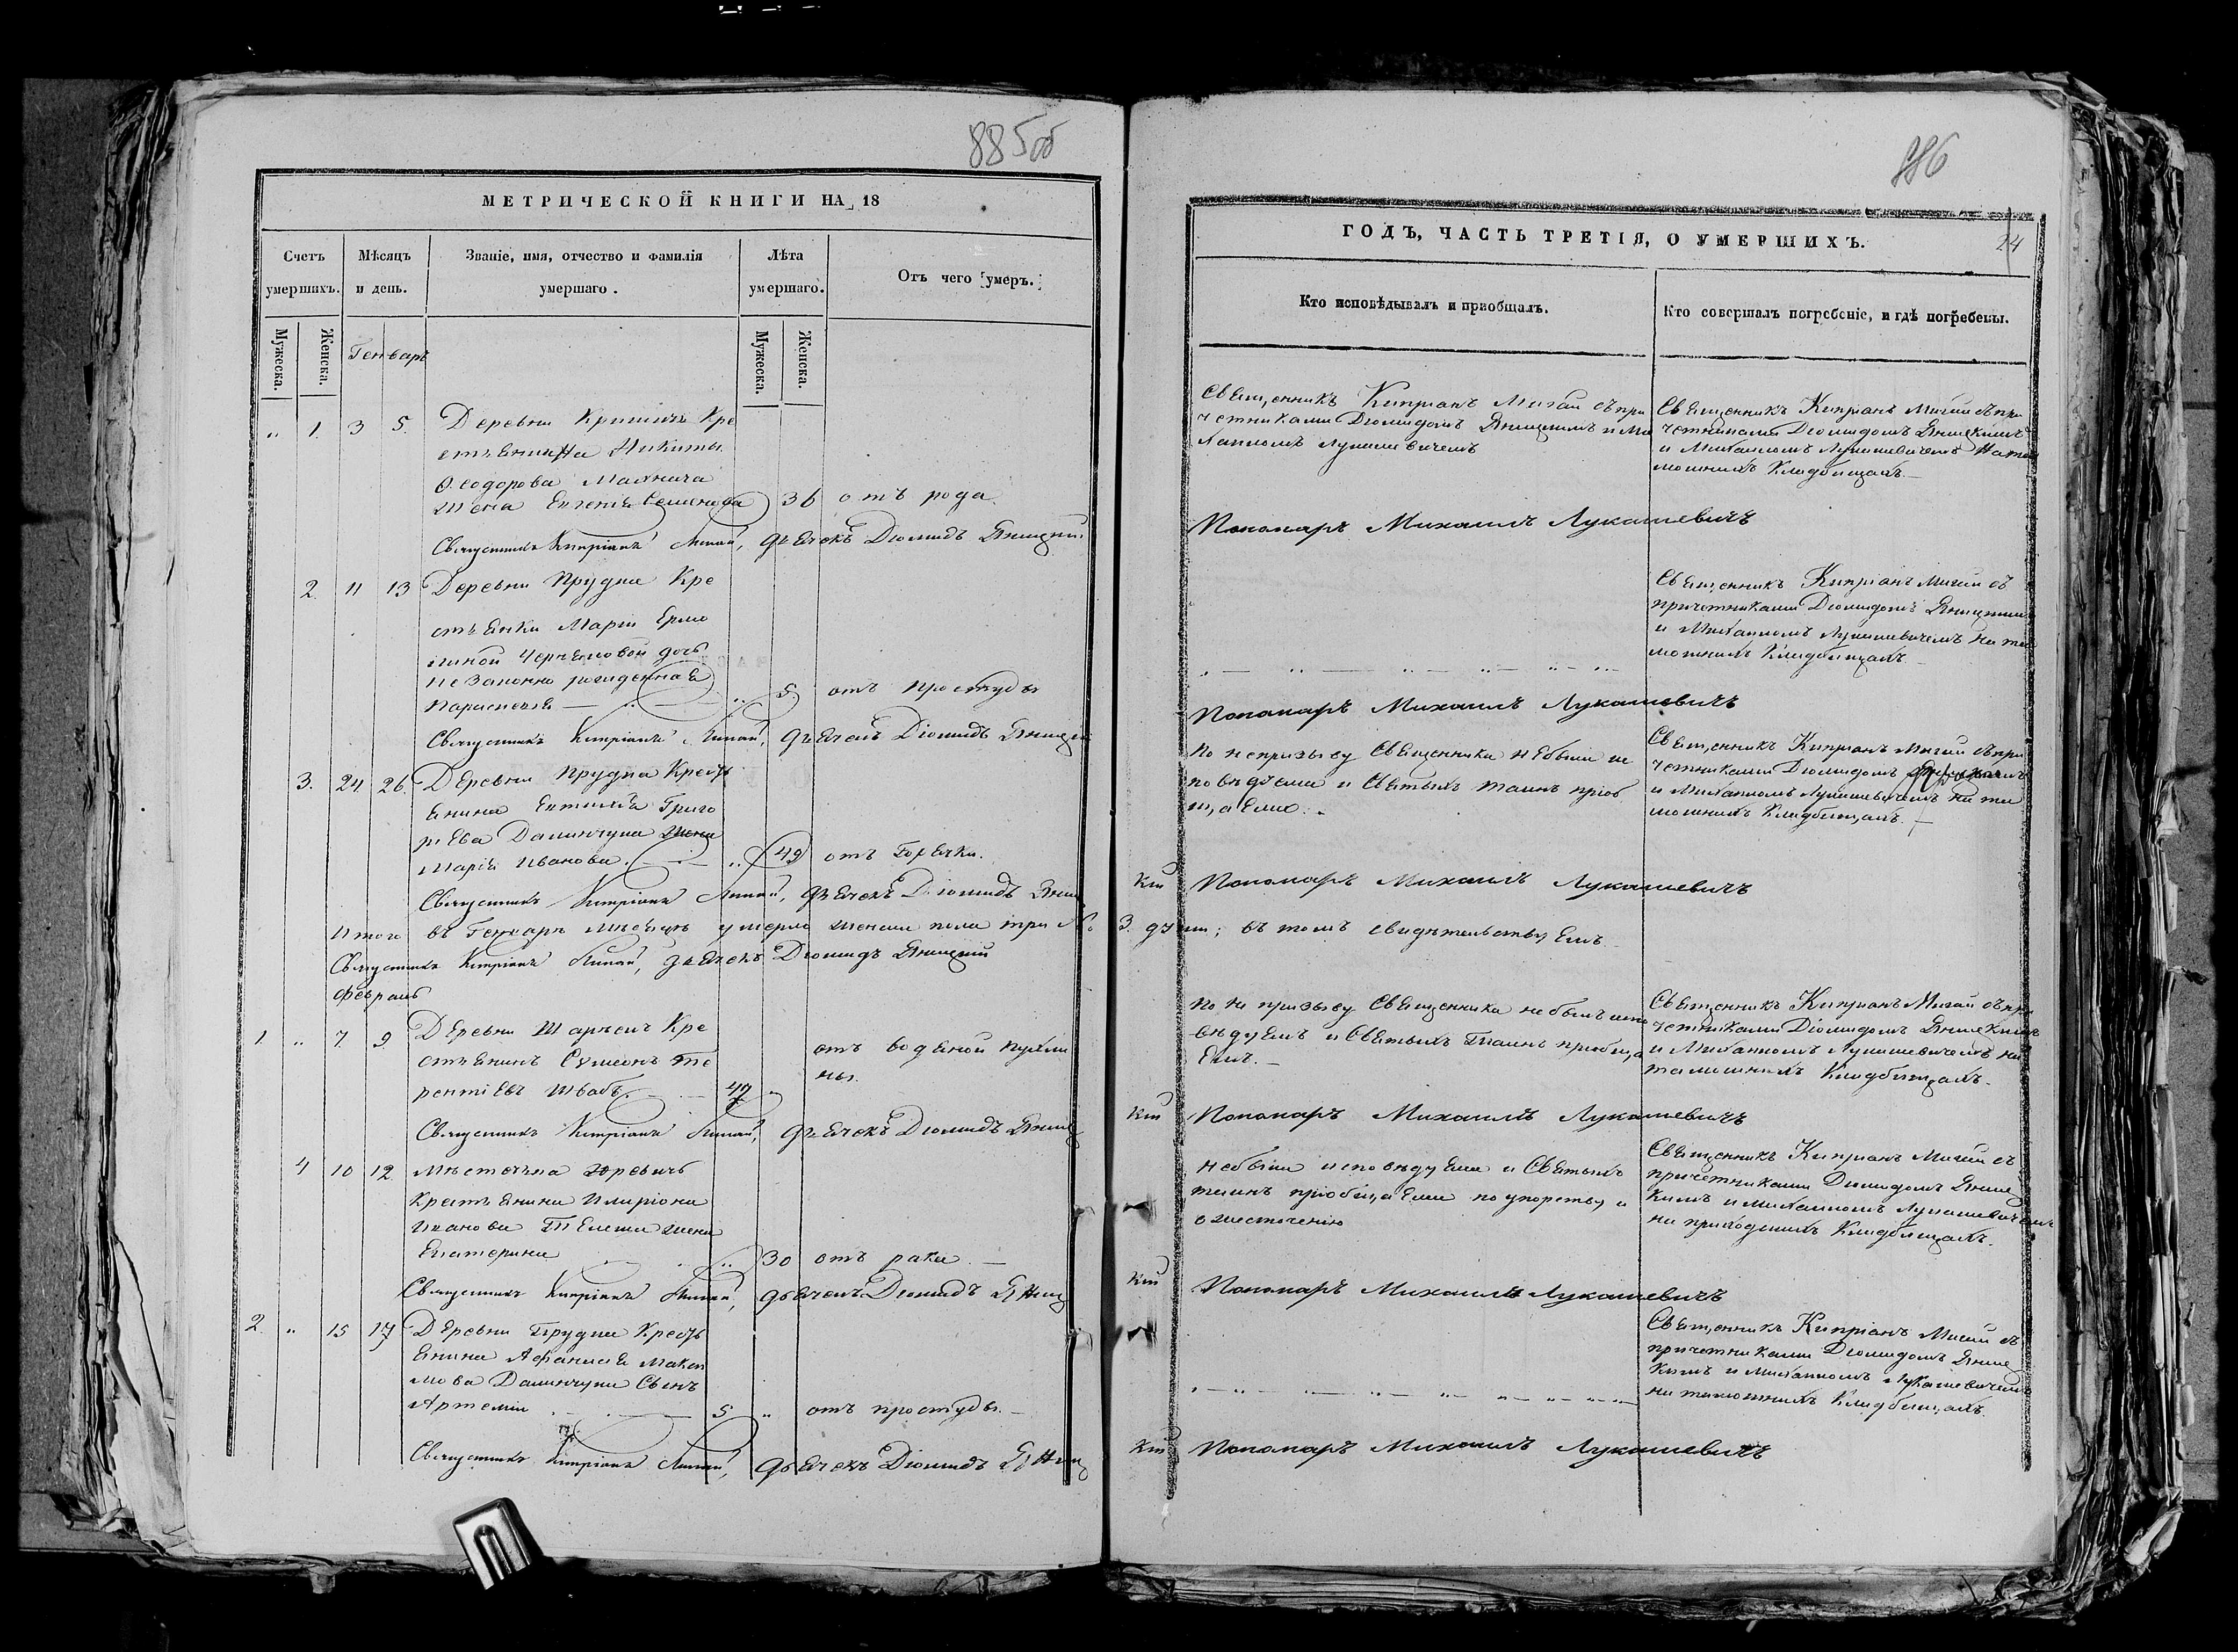 885об
МЕТРИЧЕСКОЙ КНИГИ НА 18
Счетъ умершихъ.
Мѣсяцъ и день.
Званіе, имя, отчество и фамилія умершаго.
Лѣта умершаго.
Отъ чего умеръ.
Мужеска.
Женска.
Генварь
Мужеска.
Женска.
„ 1. 3 5. Деревни Кре
стьянина Никиты
Ѳеодорова
жена Евгенія Семенова 36 отъ рода
Священникъ Кипріанъ Мигай, дьячекъ Діомидъ Яницкій
2. 11 13 Деревни Прудна Кре
стьянки Маріи Ермо
линой дочь
незаконно рожденная
Параскева „ 5. отъ простуды
Священникъ Кипріанъ Мигай, дьячекъ Діомидъ Яницкій
3. 24. 26. Деревни Прудна Кресть
янина Евтихія Григо
рьева Даминчука жена
Марія Иванова. „ 49 отъ Горячки.
Священникъ Кипріанъ Мигай, дьячекъ Діомидъ Яниц
Итого въ Генваръ мѣсяцъ умерло женска пола три №
Священникъ Кипріанъ Мигай, дьячекъ Діомидъ Яницкій
Февраль
1. „ 7. 9. Деревни Кре
стьянинъ Сѵмеонъ Те
рентіевъ Швабъ. 47 „ отъ водяной пухли
ны.
Священникъ Кипріанъ Мигай, дьячекъ Діомидъ Яниц
4 10 12. Мѣстечка Юревичъ
Крестьянина Иларіона
Иванова жена
Екатерина „ 30 отъ рака. —
Священникъ Кипріанъ Мигай, дьячекъ Діомидъ Яниц
2. „ 15 17 Деревни Прудна Кресть
янина Афанасія Макси
мова Даминчука Сынъ
Артемій 5 „ отъ простуды. —
Священникъ Кипріанъ Мигай, дьячекъ Діомидъ Яниц
886
ГОДЪ, ЧАСТЬ ТРЕТІЯ, О УМЕРШИХЪ.
24
Кто исповѣдывалъ и пріобщалъ.
Кто совершалъ погребеніе, и гдѣ погребены.
Священникъ Кипріанъ Мигай съ при
четниками Діомидомъ Яницкимъ и Ми
хаиломъ Лукашевичемъ
Священникъ Кипріанъ Мигай съ при
четниками Діомидомъ Яницкимъ
и Михаиломъ Лукашевичемъ На та
мошнихъ Кладбищахъ. —
Пономарь Михаилъ Лукашевичъ
Священникъ Кипріанъ Мигай съ
причетниками Діомидомъ Яницкимъ
и Михаиломъ Лукашевичемъ на та
мошнихъ Кладбищахъ
Пономарь Михаилъ Лукашевичъ
По непризыву Священника небыла ис
повѣдуема и Святыхъ таинъ пріоб
щаема. —
Священникъ Кипріанъ Мигай съ при
четниками Діомидомъ Яницкимъ
и Михаиломъ Лукашевичемъ на та
мошнихъ Кладбищахъ. —
кій Пономарь Михаилъ Лукашевичъ
3. души; въ томъ свидѣтельствуемъ
По не призыву Священника не былъ испо
вѣдуемъ и Святыхъ Таинъ пріобща
емъ. —
Священникъ Кипріанъ Мигай съ при
четниками Діомидомъ Яницкимъ
и Михаиломъ Лукашевичемъ на
тамошнихъ Кладбищахъ.
кій Пономарь Михаилъ Лукашевичъ
небыла исповѣдуема и Святыхъ
таинъ пріобщаема по упорству и
ожесточенію
Священникъ Кипріанъ Мигай съ
причетниками Діомидомъ Яниц
кимъ и Михаиломъ Лукашевичемъ
на приходскихъ Кладбищахъ.
кій Пономарь Михаилъ Лукашевичъ
Священникъ Кипріанъ Мигай съ
причетниками Діомидомъ Яниц
кимъ и Михаиломъ Лукашевичемъ
на тамошнихъ Кладбищахъ.
кій Пономарь Михаилъ Лукашевичъ